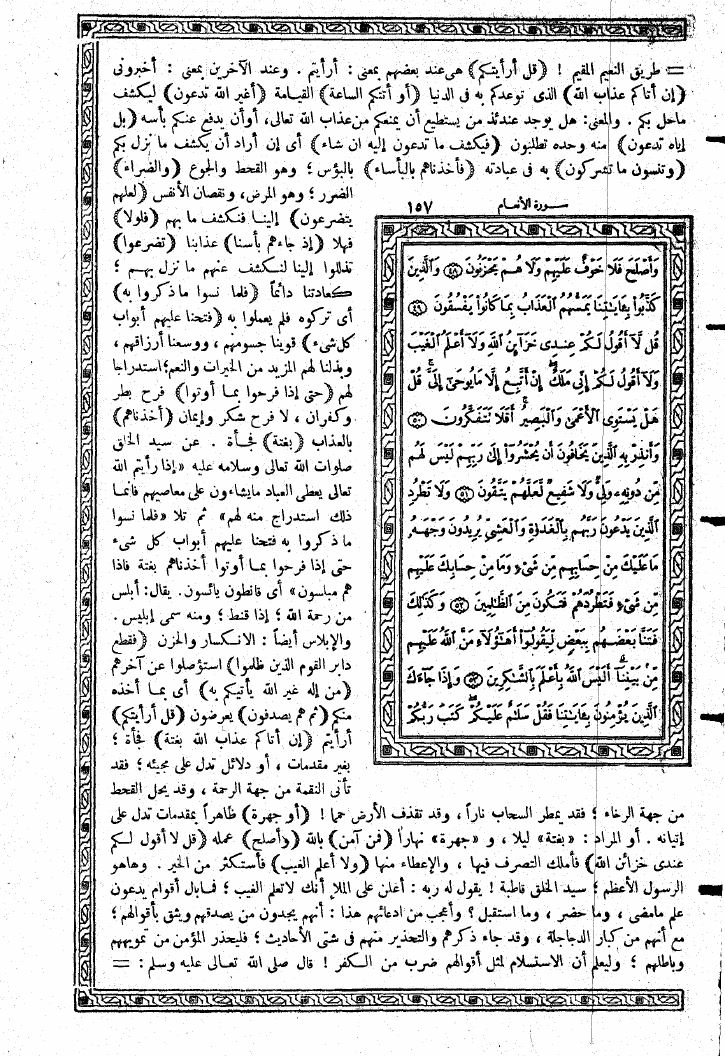 = طريق النعيم المقيم ! (قل أرأيتكم) هى عند بعضهم بمعنى : أرأيتم . وعند الآخرين بمعنى : أخبرونى
(إن أتاكم عذاب الله) الذى توعدكم به فى الدنيا (أو أتتكم الساعة) القيامة (أغير الله تدعون) ليكشف
ماحل بكم . والمعنى : هل يوجد عندئذ من يستطيع أن يمنعكم من عذاب الله تعالى، أو أن يدفع عنكم بأسه (بل
إياه تدعون) منه وحده تطلبون (فيكشف ما تدعون إليه ان شاء) أى إن أراد أن يكشف ما نزل بكم
(وتنسون ما تشركون) به فى عبادته (فأخذناهم بالبأساء) بالبؤس ؛ وهو القحط والجوع (والضراء)
الضرر ؛ وهو المرض، ونقصان الأنفس (لعلهم
يتضرعون) إلينا فنكشف ما بهم (فلولا)
فهلا (إذ جاءهم بأسنا) عذابنا (تضرعوا)
تذللوا إلينا لنكشف عنهم ما نزل بهم ؛
كعادتنا دائماً (فلما نسوا ما ذكروا به)
أى تركوه فلم يعملوا به (فتحنا عليهم أبواب
كل شىء) قوينا جسومهم ، ووسعنا أرزاقهم ،
وبذلنا لهم المزيد من الخيرات والنعم؛ استدراجا
لهم (حتى إذا فرحوا بما أوتوا) فرح بطر
وكفران ، لا فرح شكر وإيمان (أخذناهم)
بالعذاب (بغتة) فجأة . عن سيد الخلق
صلوات الله تعالى وسلامه عليه «إذا رأيتم الله
تعالى يعطى العباد مايشاءون على معاصيهم فانما
ذلك استدراج منه لهم» ثم تلا «فلما نسوا
ما ذكروا به فتحنا عليهم أبواب كل شىء
حتى إذا فرحوا بما أوتوا أخذناهم بغتة فاذا
هم مبلسون» أى قانطون يائسون. يقال: أبلس
من رحمة الله ؛ إذا قنط ؛ ومنه سمى إبليس .
والإبلاس أيضاً : الانكسار والحزن (فقطع
دابر القوم الذين ظلموا) استؤصلوا عن آخرهم
(من إله غير الله يأتيكم به) أى بما أخذه
منكم (ثم هم يصدفون) يعرضون (قل أرأيتكم)
أرأيتم (إن أتاكم عذاب الله بغتة) فجأة ؛
بغير مقدمات ، أو دلائل تدل على مجيئه ؛ فقد
تأتى النقمة من جهة الرحمة ، وقد يحل القحط
سورة الأنعام ١٥٧
وَأَصْلَحَ فَلَا خَوْفٌ عَلَيْهِمْ وَلَا هُمْ يَحْزَنُونَ ﴿٤٨﴾ وَالَّذِينَ
كَذَّبُواْ بِـَٔايَٰتِنَا يَمَسُّهُمُ الْعَذَابُ بِمَا كَانُواْ يَفْسُقُونَ ﴿٤٩﴾
قُل لَّا أَقُولُ لَكُمْ عِندِى خَزَآئِنُ اللَّهِ وَلَا أَعْلَمُ الْغَيْبَ
وَلَا أَقُولُ لَكُمْ إِنِّى مَلَكٌ إِنْ أَتَّبِعُ إِلَّا مَا يُوحَىٰٓ إِلَىَّ قُلْ
هَلْ يَسْتَوِى الْأَعْمَىٰ وَالْبَصِيرُ أَفَلَا تَتَفَكَّرُونَ ﴿٥٠﴾
وَأَنذِرْ بِهِ الَّذِينَ يَخَافُونَ أَن يُحْشَرُوٓاْ إِلَىٰ رَبِّهِمْ لَيْسَ لَهُم
مِّن دُونِهِۦ وَلِىٌّ وَلَا شَفِيعٌ لَّعَلَّهُمْ يَتَّقُونَ ﴿٥١﴾ وَلَا تَطْرُدِ
الَّذِينَ يَدْعُونَ رَبَّهُم بِالْغَدَوٰةِ وَالْعَشِىِّ يُرِيدُونَ وَجْهَهُۥ
مَا عَلَيْكَ مِنْ حِسَابِهِم مِّن شَىْءٍ وَمَا مِنْ حِسَابِكَ عَلَيْهِم
مِّن شَىْءٍ فَتَطْرُدَهُمْ فَتَكُونَ مِنَ الظَّٰلِمِينَ ﴿٥٢﴾ وَكَذَٰلِكَ
فَتَنَّا بَعْضَهُم بِبَعْضٍ لِّيَقُولُوٓاْ أَهَٰٓؤُلَآءِ مَنَّ اللَّهُ عَلَيْهِم
مِّن بَيْنِنَآ أَلَيْسَ اللَّهُ بِأَعْلَمَ بِالشَّٰكِرِينَ ﴿٥٣﴾ وَإِذَا جَآءَكَ
الَّذِينَ يُؤْمِنُونَ بِـَٔايَٰتِنَا فَقُلْ سَلَٰمٌ عَلَيْكُمْ كَتَبَ رَبُّكُمْ
من جهة الرخاء ؛ فقد يمطر السحاب ناراً ، وقد تقذف الأرض حمما ! (أو جهرة) ظاهراً بمقدمات تدل على
إتيانه . أو المراد : «بغتة» ليلا ، و «جهرة» نهاراً (فمن آمن) بالله (وأصلح) عمله (قل لا أقول لكم
عندى خزائن الله) فأملك التصرف فيها ، والإعطاء منها (ولا أعلم الغيب) فأستكثر من الخير . وهاهو
الرسول الأعظم ؛ سيد الخلق قاطبة ! يقول له ربه : أعلن على الملإ أنك لاتعلم الغيب ؛ فمابال أقوام يدعون
علم مامضى ، وما حضر ، وما استقبل ؟ وأعجب من ادعائهم هذا : أنهم يجدون من يصدقهم ويثق بأقوالهم ؛
مع أنهم من كبار الدجاجلة ، وقد جاء ذكرهم والتحذير منهم فى شتى الأحاديث ؛ فليحذر المؤمن من تمويههم
وباطلهم ؛ وليعلم أن الاستسلام لمثل أقوالهم ضرب من الكفر ! قال صلى الله تعالى عليه وسلم : =